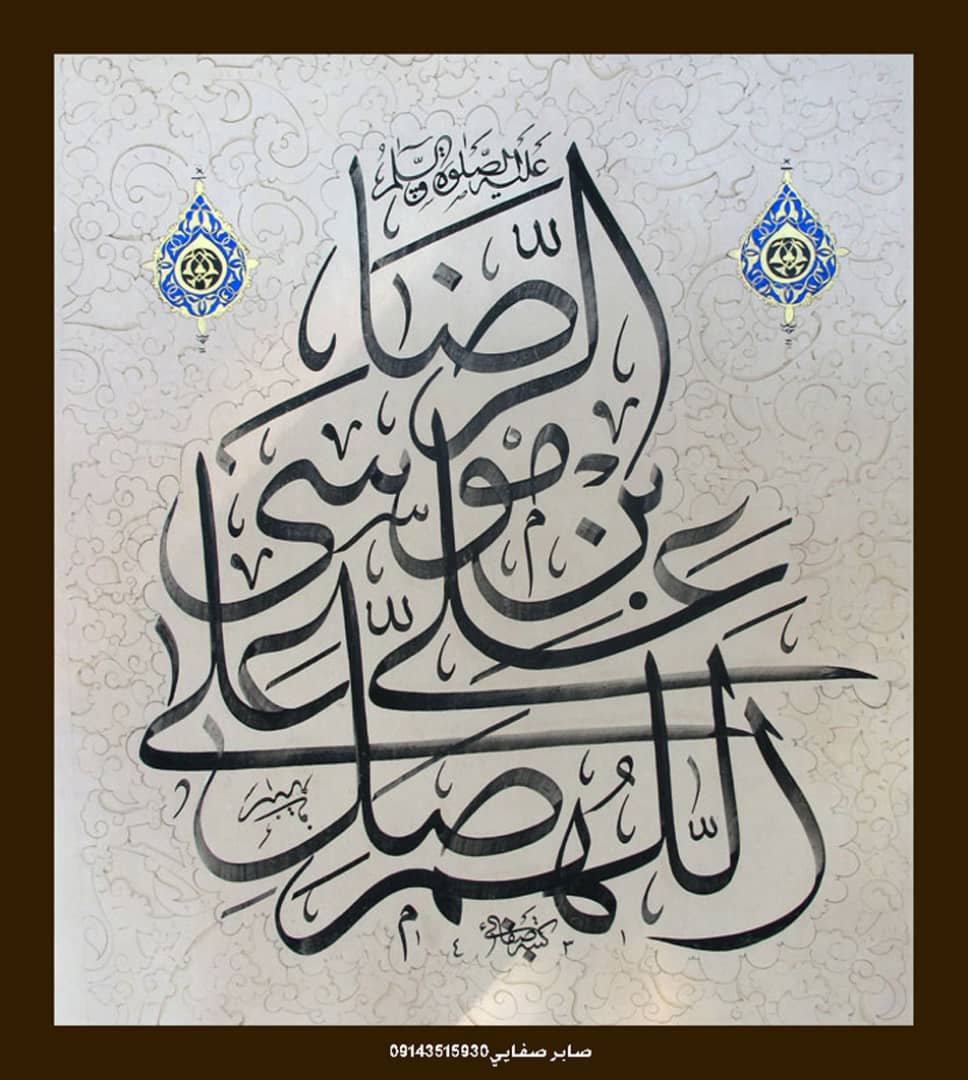 اللّهم صلِّ على
عليّ بن موسى
الرّضا
عليه الصّلوة و السّلم
كتبه صفائی
صابر صفايي09143515930